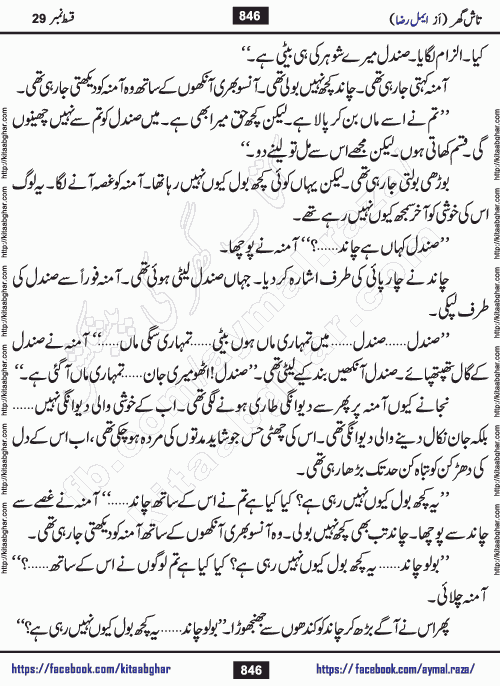 تاش گھر (از ایمل رضا) 846 قسط نمبر 29
کیا۔ الزام لگایا۔ صندل میرے شوہر کی ہی بیٹی ہے۔‘‘
آمنہ کہتی جا رہی تھی۔ چاند کچھ نہیں بولی تھی۔ آنسو بھری آنکھوں کے ساتھ وہ آمنہ کو دیکھتی جا رہی تھی۔
’’تم نے اسے ماں بن کر پالا ہے۔ لیکن کچھ حق میرا بھی ہے۔ میں صندل کو تم سے نہیں چھینوں
گی۔ قسم کھاتی ہوں۔ لیکن مجھے اس سے مل تو لینے دو۔‘‘
بوڑھی بولتی جا رہی تھی۔ لیکن یہاں کوئی کچھ بول کیوں نہیں رہا تھا۔ آمنہ کو غصہ آنے لگا۔ یہ لوگ
اس کی خوشی کو آخر سمجھ کیوں نہیں رہے تھے۔
’’صندل کہاں ہے چاند......؟‘‘ آمنہ نے پوچھا۔
چاند نے چارپائی کی طرف اشارہ کر دیا۔ جہاں صندل لیٹی ہوئی تھی۔ آمنہ فوراً سے صندل کی
طرف لپکی۔
’’صندل......صندل...... میں تمہاری ماں ہوں بیٹی......تمہاری سگی ماں.....‘‘ آمنہ نے صندل
کے گال تھپتھپائے۔ صندل آنکھیں بند کیے لیٹی تھی۔ ’’صندل! اٹھو میری جان......تمہاری ماں آ گئی ہے۔‘‘
نجانے کیوں آمنہ پر پھر سے دیوانگی طاری ہونے لگی تھی۔ اب کے خوشی والی دیوانگی نہیں......
بلکہ جان نکال دینے والی دیوانگی تھی۔ اس کی چھٹی حس جو شاید مدتوں کی مردہ ہو چکی تھی، اب اس کے دل
کی دھڑکن کو تباہ کن حد تک بڑھا رہی تھی۔
’’یہ کچھ بول کیوں نہیں رہی ہے؟ کیا کیا ہے تم نے اس کے ساتھ چاند......‘‘ آمنہ نے غصے سے
چاند سے پوچھا۔ چاند تب بھی کچھ نہیں بولی۔ وہ آنسو بھری آنکھوں کے ساتھ آمنہ کو دیکھتی جا رہی تھی۔
’’بولو چاند...... یہ کچھ بول کیوں نہیں رہی ہے؟ کیا کیا ہے تم لوگوں نے اس کے ساتھ......؟‘‘
آمنہ چلائی۔
پھر اس نے آگے بڑھ کر چاند کو کندھوں سے جھنجھوڑا۔ ’’بولو چاند......یہ کچھ بول کیوں نہیں رہی ہے؟‘‘
https://facebook.com/kitaabghar 846 https://facebook.com/aymal.raza/
http://kitaabghar.com http://kitaabghar.com http://kitaabghar.com http://kitaabghar.com http://kitaabghar.com http://kitaabghar.com